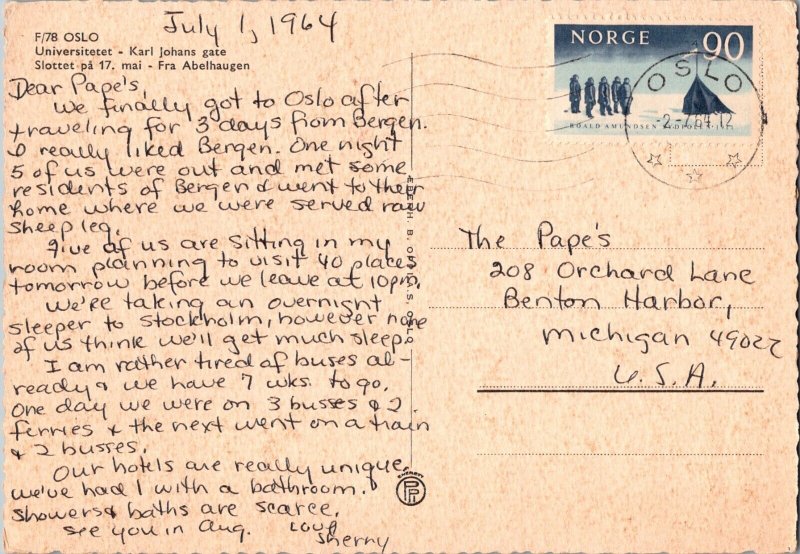 July 1, 1964
F/78 OSLO
Universitetet - Karl Johans gate
Slottet på 17. mai - Fra Abelhaugen
Dear Pape's,
We finally got to Oslo after
traveling for 3 days from Bergen.
I really liked Bergen. One night
5 of us were out and met some
residents of Bergen & went to their
home where we were served raw
sheep leg.
Five of us are sitting in my
room planning to visit 40 places
tomorrow before we leave at 10pm.
We're taking an overnight
sleeper to Stockholm, however none
of us think we'll get much sleep.
I am rather tired of buses al-
ready & we have 7 wks. to go.
One day we were on 3 busses & 2
ferries & the next went on a train
& 2 busses.
Our hotels are really unique,
we've had 1 with a bathroom.
Showers & baths are scarce.
See you in Aug.
Love
Sherry
NORGE 90
ROALD AMUNDSEN
OSLO
-2-7.64.12
The Pape's
208 Orchard Lane
Benton Harbor,
Michigan 49022
U.S.A.